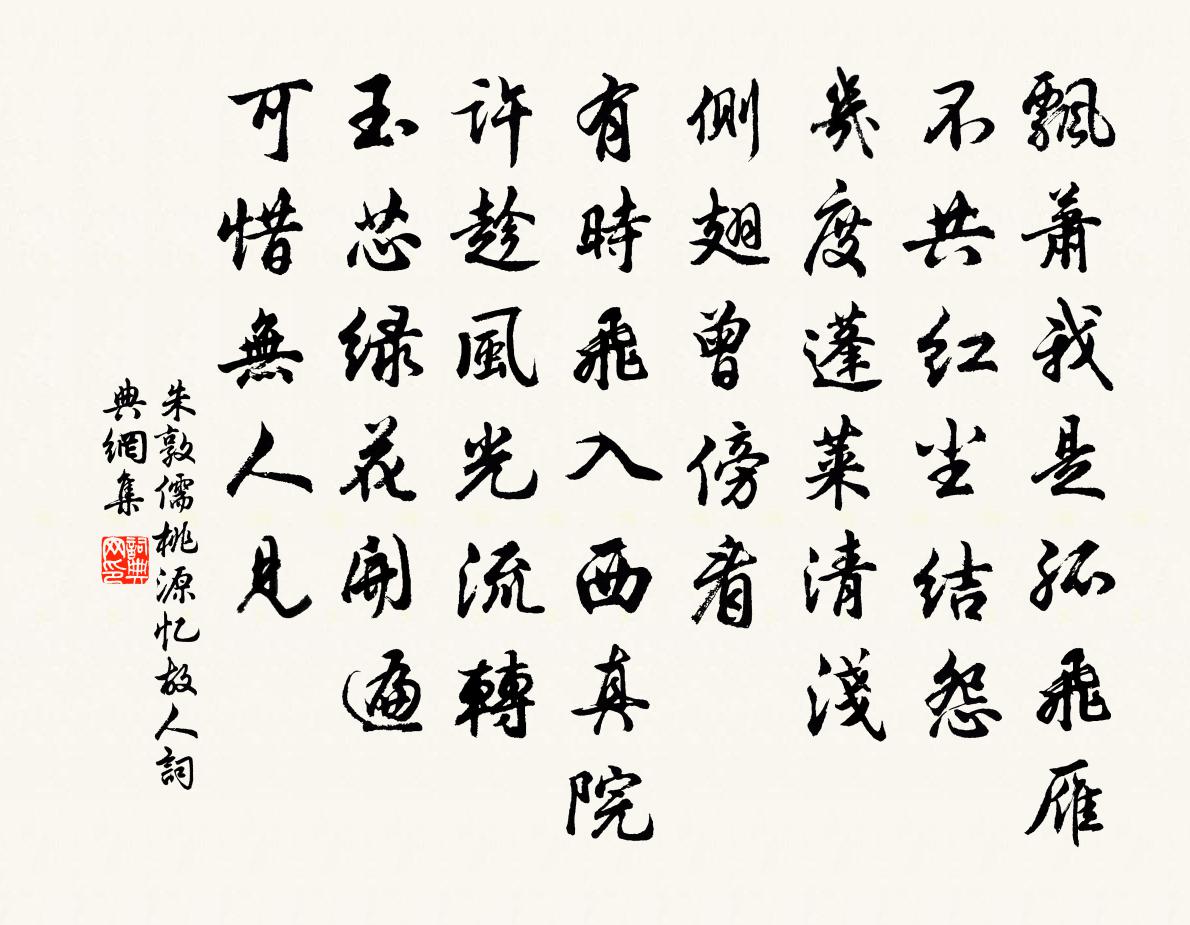 飄蕭我是孤飛雁
不共红尘結怨
幾度蓬萊清淺
側翅曾傍看
有時飛入西真院
許趁風光流轉
玉芯绿花開遍
可惜無人見
朱敦儒桃源忆故人詞
典網集
詞典网印